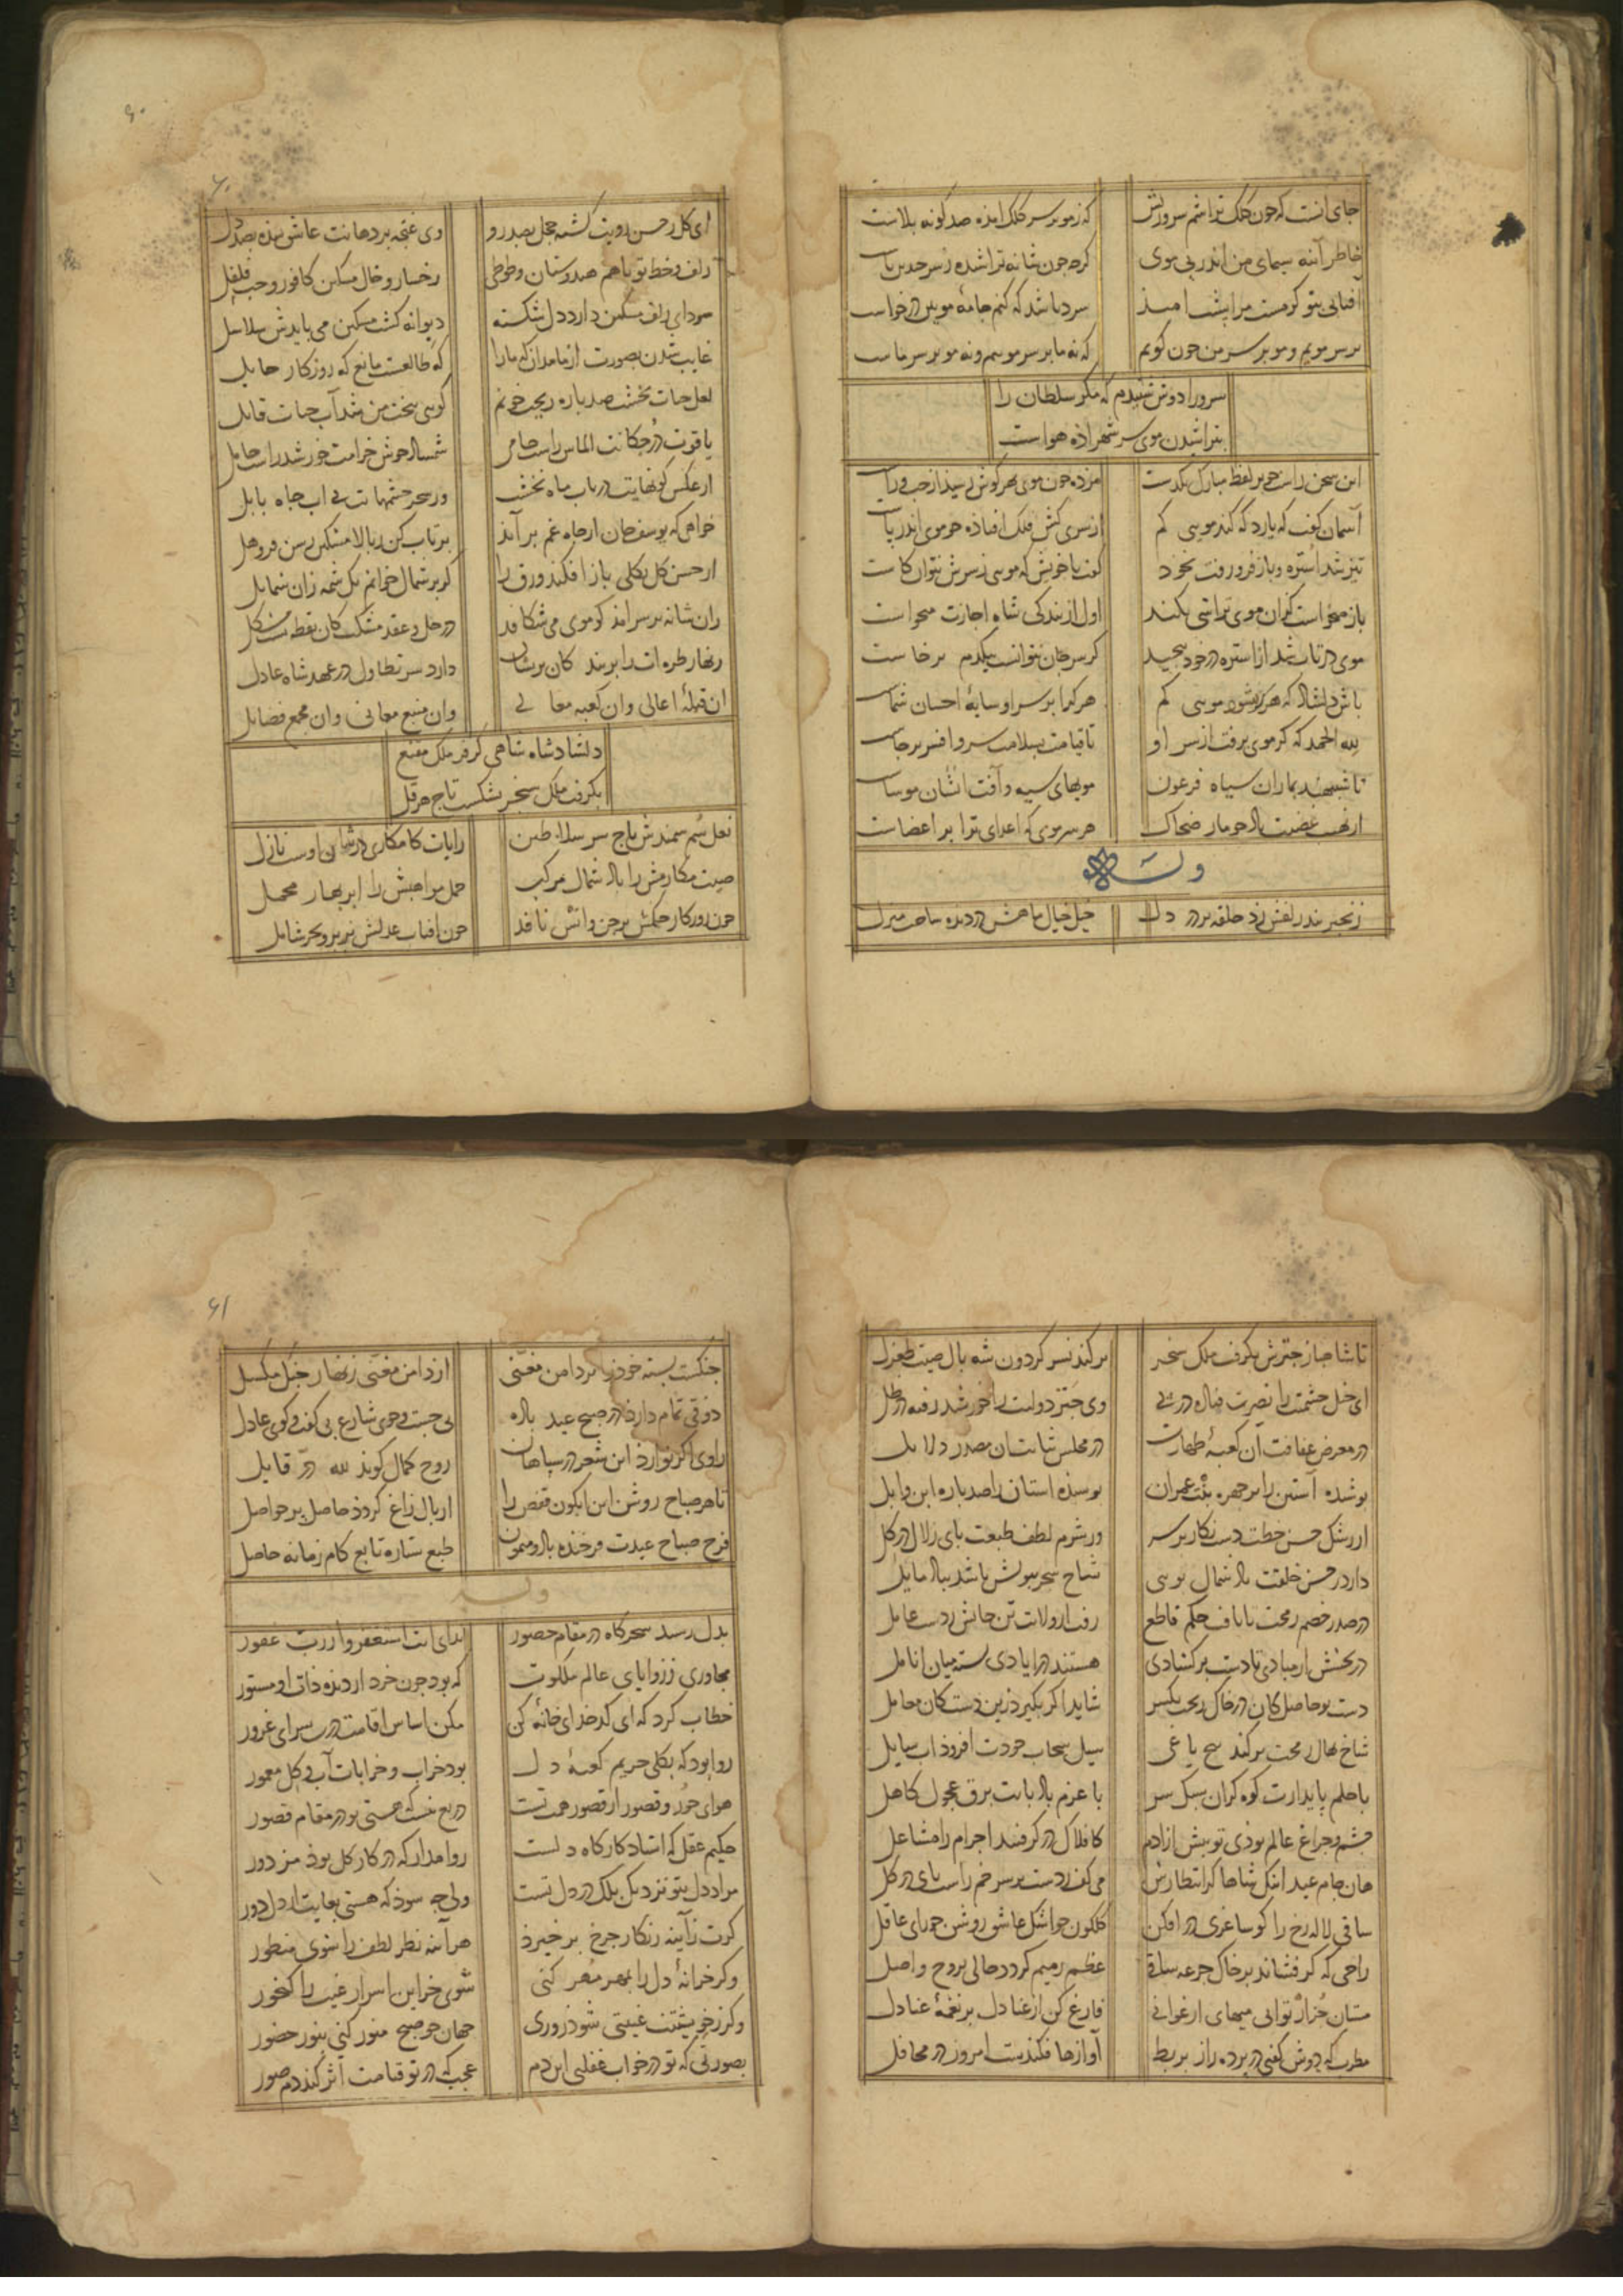 جای انست که چون کلک تراشم سر ورش که ز مو بر سر کلک امذه صد کونه بلاست
خاطر آینه سیمای من اندر بی موی کرد جون شانه تراشیده
آفتابی تو کرمست مرا پشت امید سرد باشد که کنم جامهٔ مویین درخواست
بر سر مویم و مو بر سر من چون کویم که نه ما بر سر موییم و نه مو بر سر ماست
سرورا دوش شنیدم که مکر سلطان را
بتراشیدن موی سر شهزاده هواست
این سخن راست جو بر لفظ مبارک بکذشت مژده چون موی بهر کوش رسید از چپ و راست
آسمان کفت که یارد که کند مویی کم از سری کش فلک افتاذه چو موی اندر پاست
تیز شد استره و باز فرو رفت بخود کفت با خویش که مویی ز سرش نتوان کاست
باز میخواست کزان موی تراشی بکند اول از بندکی شاه اجازت میخواست
موی در تاب شد از استره در خود پیچید کز سر جان نتوانست بیکدم برخاست
باش دلشاد که هرکز نشود مویی کم هر کرا بر سر او سایهٔ احسان شماست
لله الحمد که کر موی برفت از سر او تا قیامت بسلامت سر و افسر برجاست
تا شبیهند بماران سیاه فرعون مویهای سیه و آفت ایشان موساست
از نهیب غضبت باد چو مار ضحاک هر سر موی که اعدای ترا بر اعضاست
وله
زنجیر بند زلفش زد حلقه بر در دل خیل خیال ماهش در دیده ساخت منزل
ای کل ز حسن رویت کشته خجل بصد رو وی غنچه بر دهانت عاشق شذه بصد دل
زلف و خط تو باهم هندوستان و طوطی رخسار و خال مشکین کافور و حب فلفل
سودای زلف مشکین دارد دل شکسته دیوانه کشت مسکین می بایدش سلاسل
غایب شدن بصورت از ما مدان که ما را که طالعست مانع که روزکار حایل
لعل حیات بخشت صد باره ریخت خونم کویی ببخت من شد آب حیات قاتل
یاقوت درچکانت الماس راست خامر شمشاد خوش خرامت خورشید راست حامل
از عکس کونهایت در تاب ماه نخشب وز سحر چشمهایت بی اب چاه بابل
خواهی که یوسف جان از چاه غم بر آید بر تاب کن ز بالا مشکین رسن فروهل
از حسن کل بکلی باز افکند ورق را کر بر شمال خوانم یک شمه زان شمایل
زان شانه بر سر آمد کو موی می شکافد در حل و عقد مشکت کان نقطه ایست مشکل
زنهار طره ات را بر بند کان پریشان دارد سر تطاول در عهد شاه عادل
ان قبلهٔ اعالی وان کعبه معالی وان منبع معانی وان مجمع فضایل
دلشاد شاه شاهی کز فر ملک مقنع
بکرفت ملک سنجر بشکست تاج هرقل
نعل سم سمندش تاج سر سلاطین رایات کامکاری در شان اوست نازل
صیت مکارمش را باد شمال مرکب حمل مواهبش را ابر بهار محمل
چون روزکار حکمش بر جن و انس نافذ چون افتاب عدلش بر بر و بحر شامل
تا شاهباز چترش بکرفت ملک سنجر بر کند نسر کردون شه بال صیت طغرل
ای خیل حشمتت را نصرت فتاده در پی وی چتر دولتت را خورشید رفته در ظل
در معرض عفافت ان کعبهٔ طهارت در مجلس
پوشیده آستین را بر چهره بنت عمران بوسیده استان را صد باره ابن وایل
از رشک حسن خطت دست نکار بر سر وز شرم لطف طبعت پای زلال در کل
دارد ز حسن خلقت باد شمال بویی شاخ شجر ببویش باشد بباد مایل
در صدر خصم رمحت با باف حکم قاطع رفت از ولایت تن جانش ز دست عامل
در بخشش ار مبادی تا دست بر کشادی هستند در ایادی بسته میان انامل
دست تو حاصل کان در خاک ریخت یکسر شاید اکر بکیرد زین دست کان محامل
شاخ نهال رمحت بر کند بیخ یاغی سیل سحاب جودت افزود اب سایل
با حلم پایدارت کوه کران سبک سر با عزم باد پایت برق عجول کاهل
چشم و چراغ عالم بودی تو پیش از آدم کافلاک در کرفتند اجرام را مشاعل
هان جام عید اینک شاها کز انتظارش می کف ز دست بر سر خم راست پای در کل
ساقی لاله رخ را کو ساغری در افکن کلکون چو اشک عاشق روشن چو رای عاقل
راحی که کر فشاند بر خاک جرعه ساقی عظم رمیم کردد حالی بروح واصل
مستان هزار توابی میهای ارغوانی فارغ کن از عنادل بر نغمهٔ عنادل
مطرب که دوش کفتی در پرده راز بربط آوازها فکندست امروز در محافل
چنکست بسته خود را بر دامن مغنی از دامن مغنی زنهار چنک مکسل
ذوقی تمام دارد در صبح عید باده
راوی اکر نوازد این شعر در سپاهان روح کمال کوید لله در قایل
تا هر صباح روشن این آبکون قفص را از بال زاغ کردد حاصل پر حواصل
فرخ صباح عیدت فرخنده باد و میمون طبع ستاره تابع کام زمانه حاصل
وله
بدل رسید سحرکاه در مقام حضور ندای انت استغفروا ز رب غفور
مجاوری ز زوایای عالم ملکوت که بود چون خرد از دیده ذات او مستور
خطاب کرد که ای کدخدای خانهٔ کن مکن اساس اقامت درین سرای غرور
روا بود که بکلی حریم کعبهٔ دل بود خراب و خرابات آب و کل معمور
هوای حور و قصور از قصور همت تست دریغ نیست که هستی تو در مقام قصور
حکیم عقل که استاد کارکاه دلست روا مدار که در کار کل بوذ مزدور
مراد دل بتو نزدیک بلک در دل تست ولی چه سوذ که هستی بغایت از دل دور
کرت ز آینه زنکار چرخ بر خیزد هر آینه نظر لطف را شوی منظور
وکر خزانهٔ دل را بمهر مهر کنی شوی خزاین اسرار غیب را کنجور
وکر ز خویشتنت غیبتی شود روزی جهان چو صبح منور کنی بنور حضور
بصورتی که تو در خواب غفلتی این دم عجب که در تو قیامت اثر کند دم صور
۶۰
۶۱